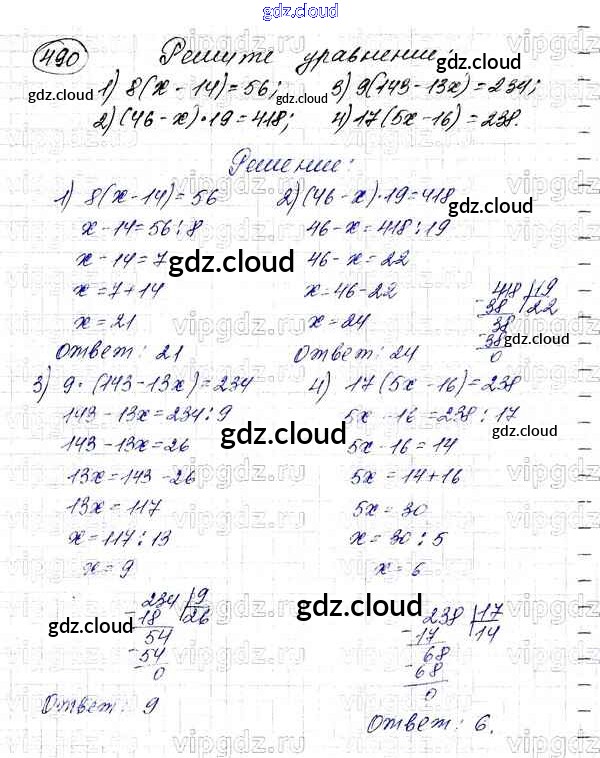 gdz.cloud
490 Решите уравнение:
1) 8(x - 14) = 56; 3) 9(143 - 13x) = 234;
2) (46 - x)·19 = 418; 4) 17(5x - 16) = 238.
Решение:
1) 8(x - 14) = 56
x - 14 = 56 : 8
x - 14 = 7
x = 7 + 14
x = 21
Ответ: 21
2) (46 - x)·19 = 418
46 - x = 418 : 19
46 - x = 22
x = 46 - 22
x = 24
Ответ: 24
418 | 19
- 38 22
38
- 38
0
3) 9·(143 - 13x) = 234
143 - 13x = 234 : 9
143 - 13x = 26
13x = 143 - 26
13x = 117
x = 117 : 13
x = 9
234 | 9
- 18 26
54
- 54
0
Ответ: 9
4) 17(5x - 16) = 238
5x - 16 = 238 : 17
5x - 16 = 14
5x = 14 + 16
5x = 30
x = 30 : 5
x = 6
238 | 17
- 17 14
68
- 68
0
Ответ: 6.
gdz.cloud
gdz.cloud
gdz.cloud
gdz.cloud
gdz.cloud
gdz.cloud
gdz.cloud
gdz.cloud
gdz.cloud
gdz.cloud
gdz.cloud
vipgdz.ru